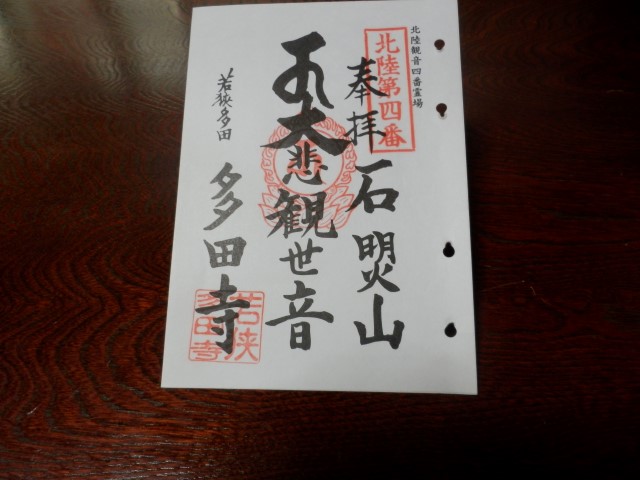 北陸観音四番霊場
北陸第四番
奉拝 石煛山
大悲観世音
若狭多田 多田寺
若狭
多田寺